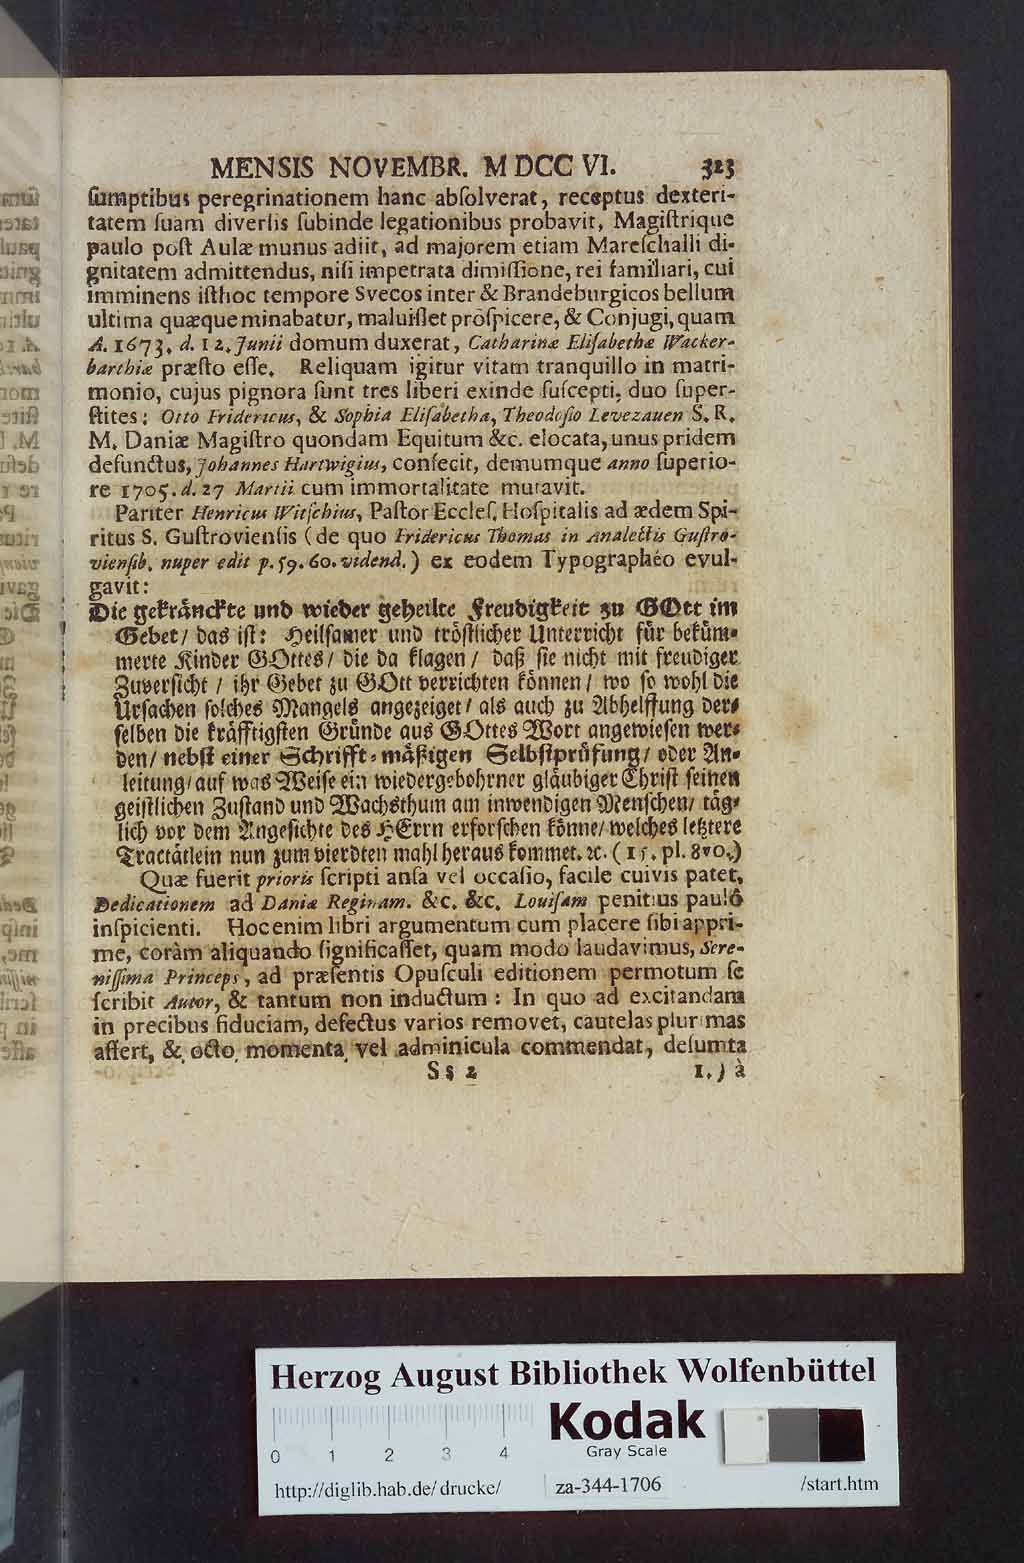 MENSIS NOVEMBR. M DCC VI. 323
ſumptibus peregrinationem hanc abſolverat, receptus dexteri-
tatem ſuam diverſis ſubinde legationibus probavit, Magiſtrique
paulo poſt Aulæ munus adiit, ad majorem etiam Mareſchalli di-
gnitatem admittendus, niſi impetrata dimiſſione, rei familiari, cui
imminens iſthoc tempore Svecos inter & Brandeburgicos bellum
ultima quæque minabatur, maluiſſet proſpicere, & Conjugi, quam
A. 1673. d. 12. Junii domum duxerat, Catharinæ Eliſabethæ Wacker-
barthiæ præſto eſſe. Reliquam igitur vitam tranquillo in matri-
monio, cujus pignora ſunt tres liberi exinde ſuſcepti, duo ſuper-
ſtites: Otto Fridericus, & Sophia Eliſabetha, Theodoſio Levezauen S. R.
M. Daniæ Magiſtro quondam Equitum &c. elocata, unus pridem
defunctus, Johannes Hartwigius, confecit, demumque anno ſuperio-
re 1705. d. 27 Martii cum immortalitate mutavit.
Pariter Henricus Witſchius, Paſtor Eccleſ. Hoſpitalis ad ædem Spi-
ritus S. Guſtrovienſis (de quo Fridericus Thomas in Analectis Guſtro-
vienſib. nuper edit p. 59. 60. vidend.) ex eodem Typographéo evul-
gavit:
Die gekränckte und wieder geheilte Freudigkeit zu GOtt im
Gebet/ das iſt: Heilſamer und tröſtlicher Unterricht für beküm-
merte Kinder GOttes/ die da klagen/ daß ſie nicht mit freudiger
Zuverſicht / ihr Gebet zu GOtt verrichten können/ wo ſo wohl die
Urſachen ſolches Mangels angezeiget/ als auch zu Abhelffung der-
ſelben die kräfftigſten Gründe aus GOttes Wort angewieſen wer-
den/ nebſt einer Schrifft-mäßigen Selbſtprüfung/ oder An-
leitung/ auf was Weiſe ein wiedergebohrner gläubiger Chriſt ſeinen
geiſtlichen Zuſtand und Wachsthum am inwendigen Menſchen/ täg-
lich vor dem Angeſichte des HErrn erforſchen könne/ welches letztere
Tractätlein nun zum vierdten mahl heraus kommet. ꝛc. (15. pl. 8vo.)
Quæ fuerit prioris ſcripti anſa vel occaſio, facile cuivis patet,
Dedicationem ad Daniæ Reginam. &c. &c. Louiſam penitius paulô
inſpicienti. Hoc enim libri argumentum cum placere ſibi appri-
me, coràm aliquando ſignificaſſet, quam modo laudavimus, Sere-
niſſima Princeps, ad præſentis Opuſculi editionem permotum ſe
ſcribit Autor, & tantum non inductum: In quo ad excitandam
in precibus fiduciam, defectus varios removet, cautelas plurimas
affert, & octo momenta vel adminicula commendat, deſumta
Ss 2 1.) à
Herzog August Bibliothek Wolfenbüttel
Kodak
Gray Scale
0 1 2 3 4
http://diglib.hab.de/drucke/ za-344-1706 /start.htm